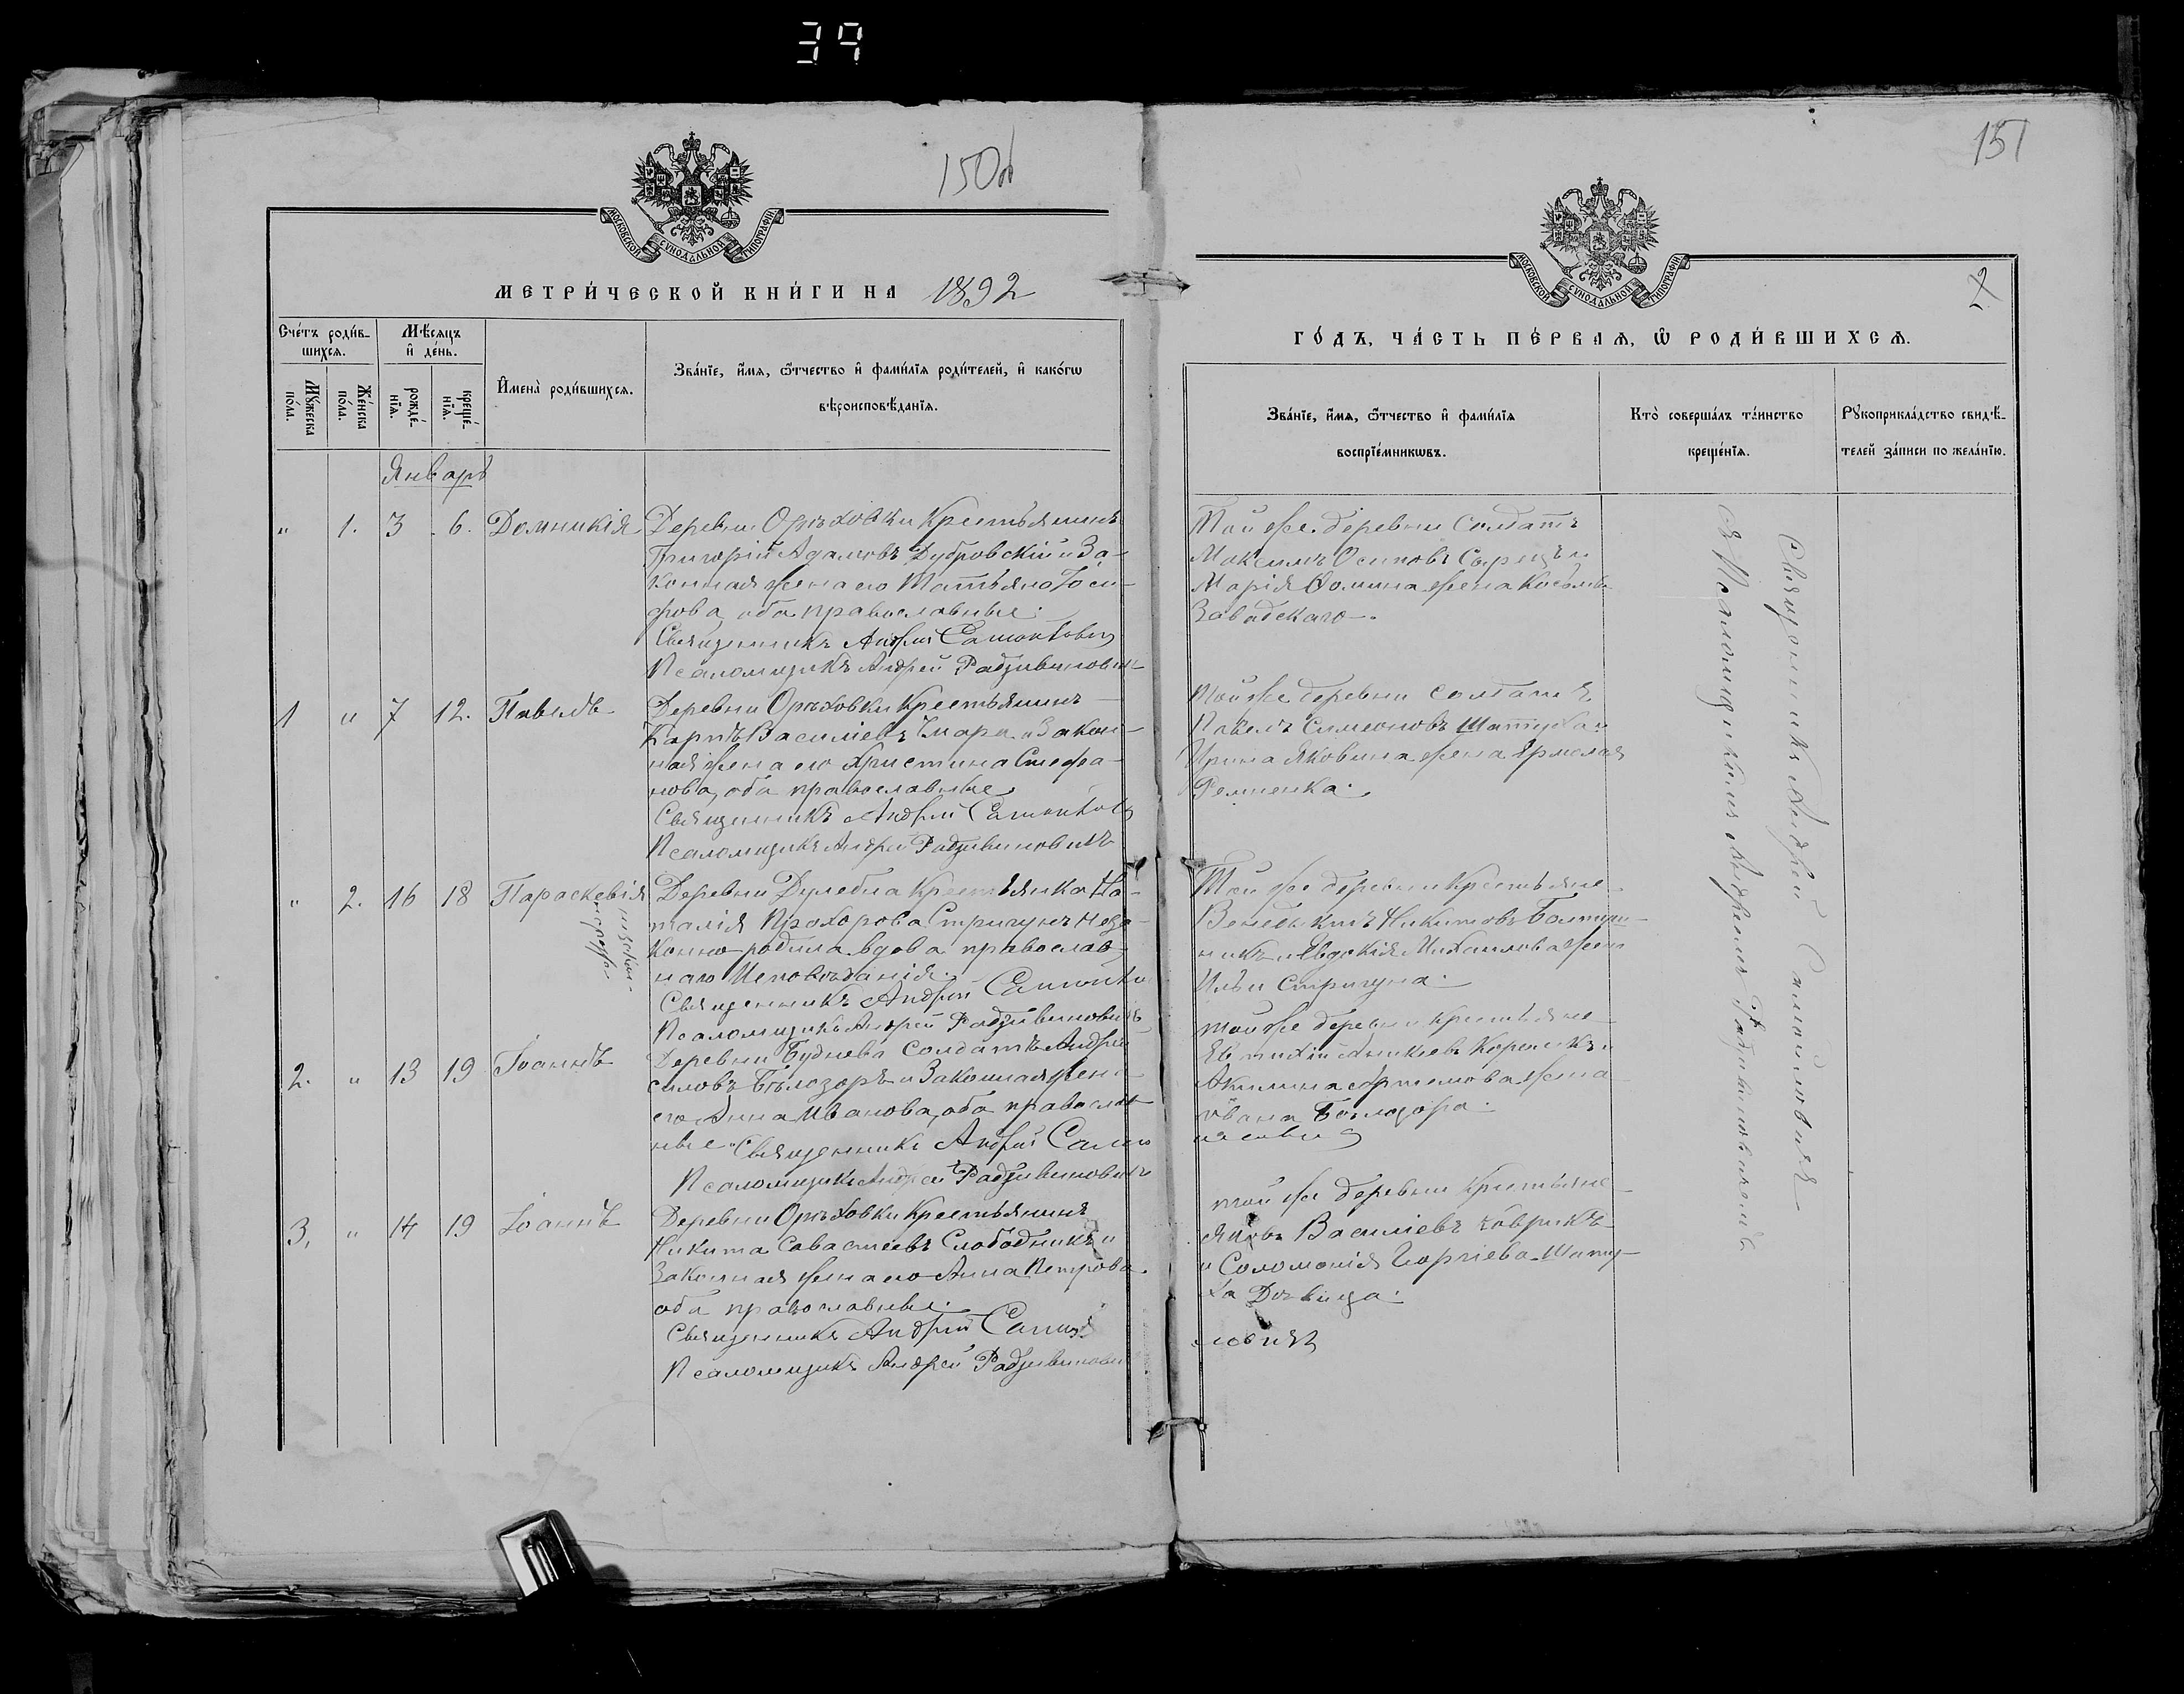 39
150об
МОСКОВСКОЙ СѴНОДАЛЬНОЙ ТИПОГРАФІИ
МЕТРИ́ЧЕСКОЙ КНИ́ГИ НА 1892
Сче́тъ роди́в-
шихся.
Мѣ́сяцъ
и҆ де́нь.
Мꙋ́жеска
по́ла.
Же́нска
по́ла.
рожде́-
нїѧ.
креще́-
нїѧ.
И҆мена̀ роди́вшихсѧ.
Зва́нїе, и҆́мѧ, ѻ҆́тчество и҆ фами́лїѧ роди́телей, и҆ како́гѡ
вѣроисповѣ́данїѧ.
Январь
" 1. 3 6. Домникія
Деревни Орѣховки Крестьянинъ
Григорій Адамовъ Дубровскій и За-
конная жена его Татьяна Іоси-
фова, оба православные.
Священникъ Андрей Самойлович
Псаломщикъ Андрей Радзивиновичъ
1 " 7 12. Павелъ
Деревни Орѣховки Крестьянинъ
Карпъ Василіевъ Шмара и Закон-
ная жена его Христина Стефа-
нова, оба православные
Священникъ Андрей Самойлович
Псаломщикъ Андрей Радзивиновичъ
" 2. 16 18 Параскевія
Деревни Дулебна Крестьянка На-
талія Прохорова Стригунъ неза-
конно родила вдова православ-
наго Исповѣданія.
Священникъ Андрей Самойло
Псаломщикъ Андрей Радзивиновичъ
2. " 13 19 Іоаннъ
Деревни Буднева Солдатъ Андрей
силовъ Бѣлозоръ и Законная жена
его Анна Иванова, оба православ
ные. Священникъ Андрей Само
Псаломщикъ Андрей Радзивиновичъ
3. " 14 19 Іоаннъ
Деревни Орѣховки Крестьянинъ
Никита Саватеевъ Слободникъ и
Законная жена его Анна Петрова.
оба православные.
Священникъ Андрей Самой
Псаломщикъ Андрей Радзивинови
151
МОСКОВСКОЙ СѴНОДАЛЬНОЙ ТИПОГРАФІИ
2
ГО́ДЪ, ЧА́СТЬ ПЕ́РВАѦ, Ѽ РОДИ́ВШИХСѦ.
Зва́нїе, и҆́мѧ, ѻ҆́тчество и҆ фами́лїѧ
воспрїе́мникѡвъ.
Кто̀ соверша́лъ та́инство
креще́нїѧ.
Рꙋкоприкла́дство свидѣ́-
телей за́писи по жела́нїю.
Той же деревни Солдатъ
Максимъ Осиповъ и
Марія Фомина жена Косьмы
Завадскаго.
Той же деревни Солдатъ
Павелъ Симеоновъ Шатуха и
Ирина Яковина жена Ярмолая
Той же деревни Крестьяне
Бенедыктъ Никитовъ
никъ и Евдокія Михаилова жена
Ильи Стригуна.
той же деревни крестьяне
Евтихій
Акилина Артемова жена
Ивана Бѣлозора.
той же деревни Крестьяне
Яковъ Василіевъ Коврикъ
и Соломонія Георгіева Шату-
ха Дѣвица.
ловичъ
Священникъ Андрей Самойловичъ
съ Псаломщикомъ Андреемъ Радзивиновичемъ